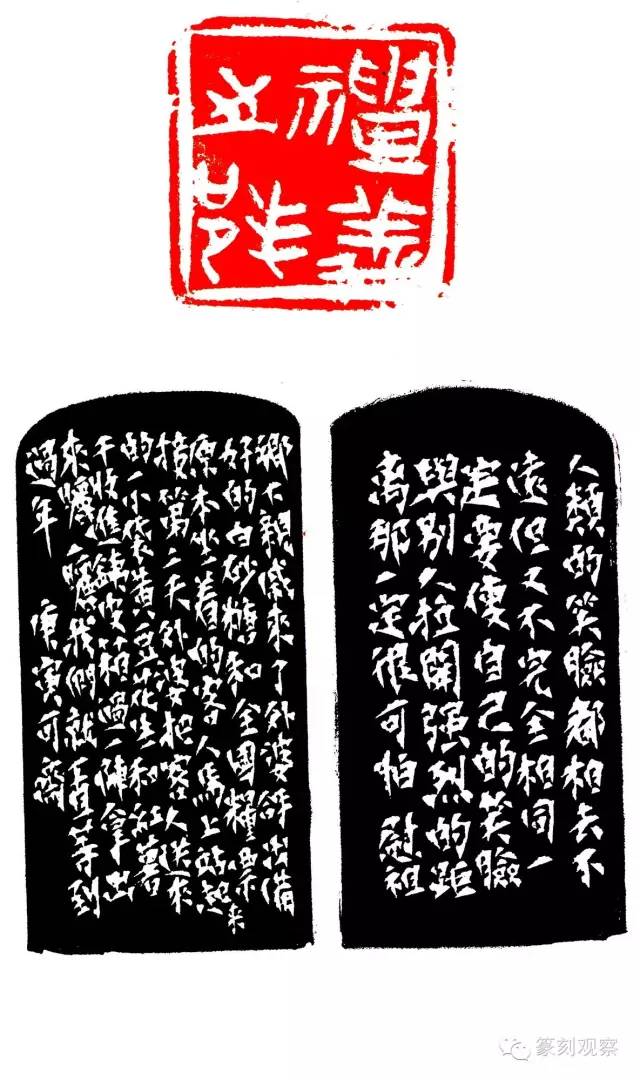 人類的笑臉都相去不
遠但又不完全相同一
定要使自己的笑臉
與別人拉開强烈的距
离那一定很可怕 慰祖
鄉下親戚來了外婆出備
好的白砂糖和全國糧票
原本坐着的客人馬上站起來
接第二天外婆把客人送來
的一小袋黃豆花生和紅薯
干收進鐵皮箱過一陣拿出
來曬一曬我們就直等到
過年 庚寅可齋
篆刻观察